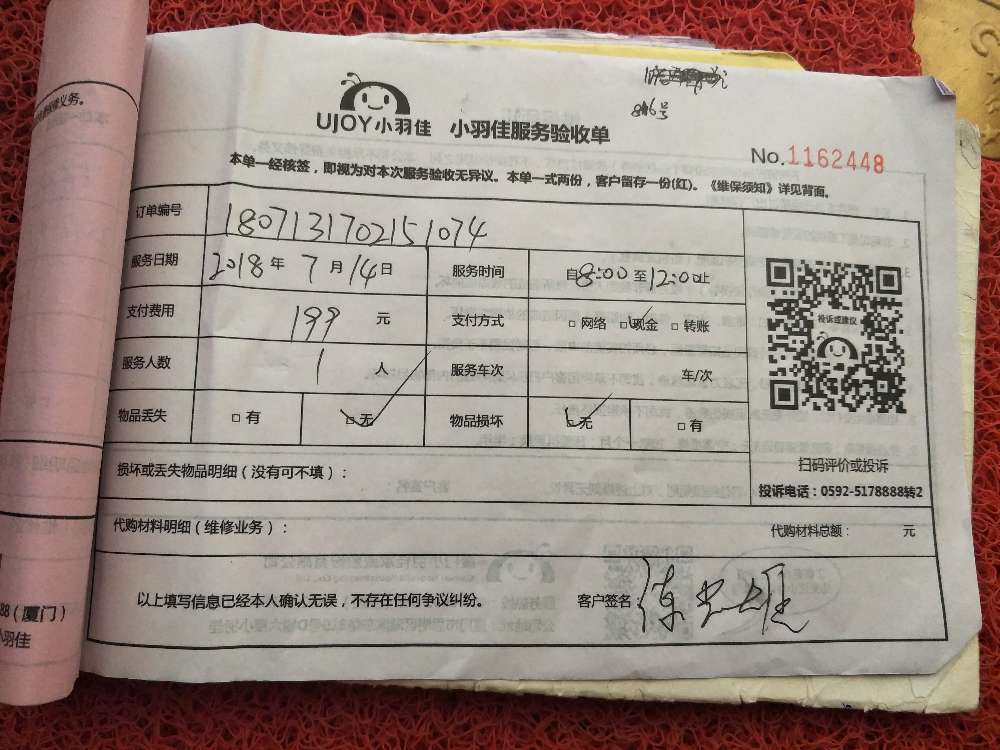 816号
UJOY小羽佳 小羽佳服务验收单
No.1162448
本单一经核签，即视为对本次服务验收无异议。本单一式两份，客户留存一份(红)。《维保须知》详见背面。
订单编号 180713170215 1074
服务日期 2018年7月14日 服务时间 自8:00至12:00止
支付费用 199元 支付方式 □网络 □现金 □转账
投诉或建议
服务人数 1人 服务车次 车/次
物品丢失 □有 □无 物品损坏 □无 □有
损坏或丢失物品明细（没有可不填）：
扫码评价或投诉
投诉电话：0592-5178888转2
代购材料明细（维修业务）： 代购材料总额： 元
以上填写信息已经本人确认无误，不存在任何争议纠纷。 客户签名
88（厦门）
小羽佳